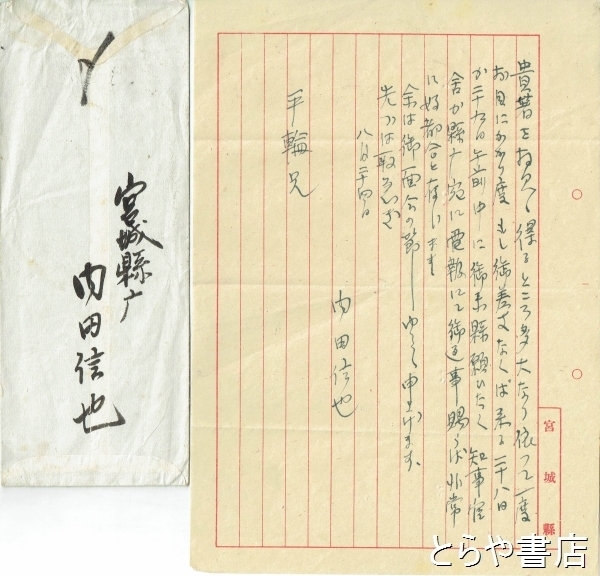 貴著を拝見、得るところ多大なり依つて一度
お目にかかり度 もし御差支なくば来る二十八日
か二十九日午前中に御来縣願ひたく 知事官
舎か縣庁宛に電報にて御返事賜らば非常
に好都合と存じます
余は御面会の節ゆるゆる申上げます、
先づは取急ぎ
八月二十四日
内田信也
平輪兄
宮城縣
宮城縣庁
内田信也
とらや書店